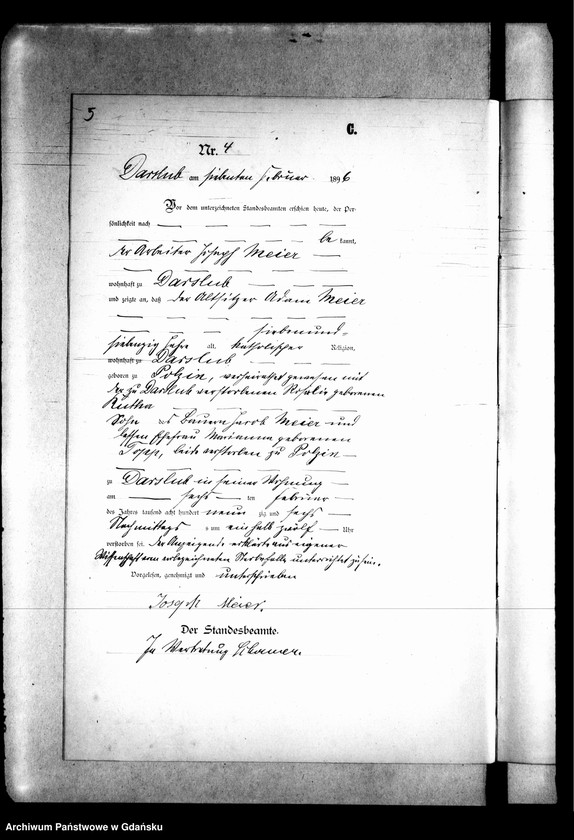 5
C.
Nr. 4
Darslub am siebenten Februar 1896
Vor dem unterzeichneten Standesbeamten erschien heute, der Per-
sönlichkeit nach
be kannt,
der Arbeiter Joseph Meier
wohnhaft zu Darslub
und zeigte an, daß der Altsitzer Adam Meier
siebenund-
siebenzig Jahre alt, katholischer Religion,
wohnhaft zu Darslub
geboren zu Polzin, verheirathet gewesen mit
der zu Darslub verstorbenen Rosalie geborenen
Sohn des Bauern Jacob Meier und
dessen Ehefrau Marianna geborenen
beide verstorben zu Polzin
zu Darslub in seiner Wohnung
am sechs ten Februar
des Jahres tausend acht hundert neun zig und sechs
Nachmittags um ein halb zwölf Uhr
verstorben sei. Der Anzeigende erklärte aus eigener
Wissenschaft vom vorbezeichneten Sterbefalle unterrichtet zu sein.
Vorgelesen, genehmigt und unterschrieben
Joseph Meier.
Der Standesbeamte.
In Vertretung
Archiwum Państwowe w Gdańsku